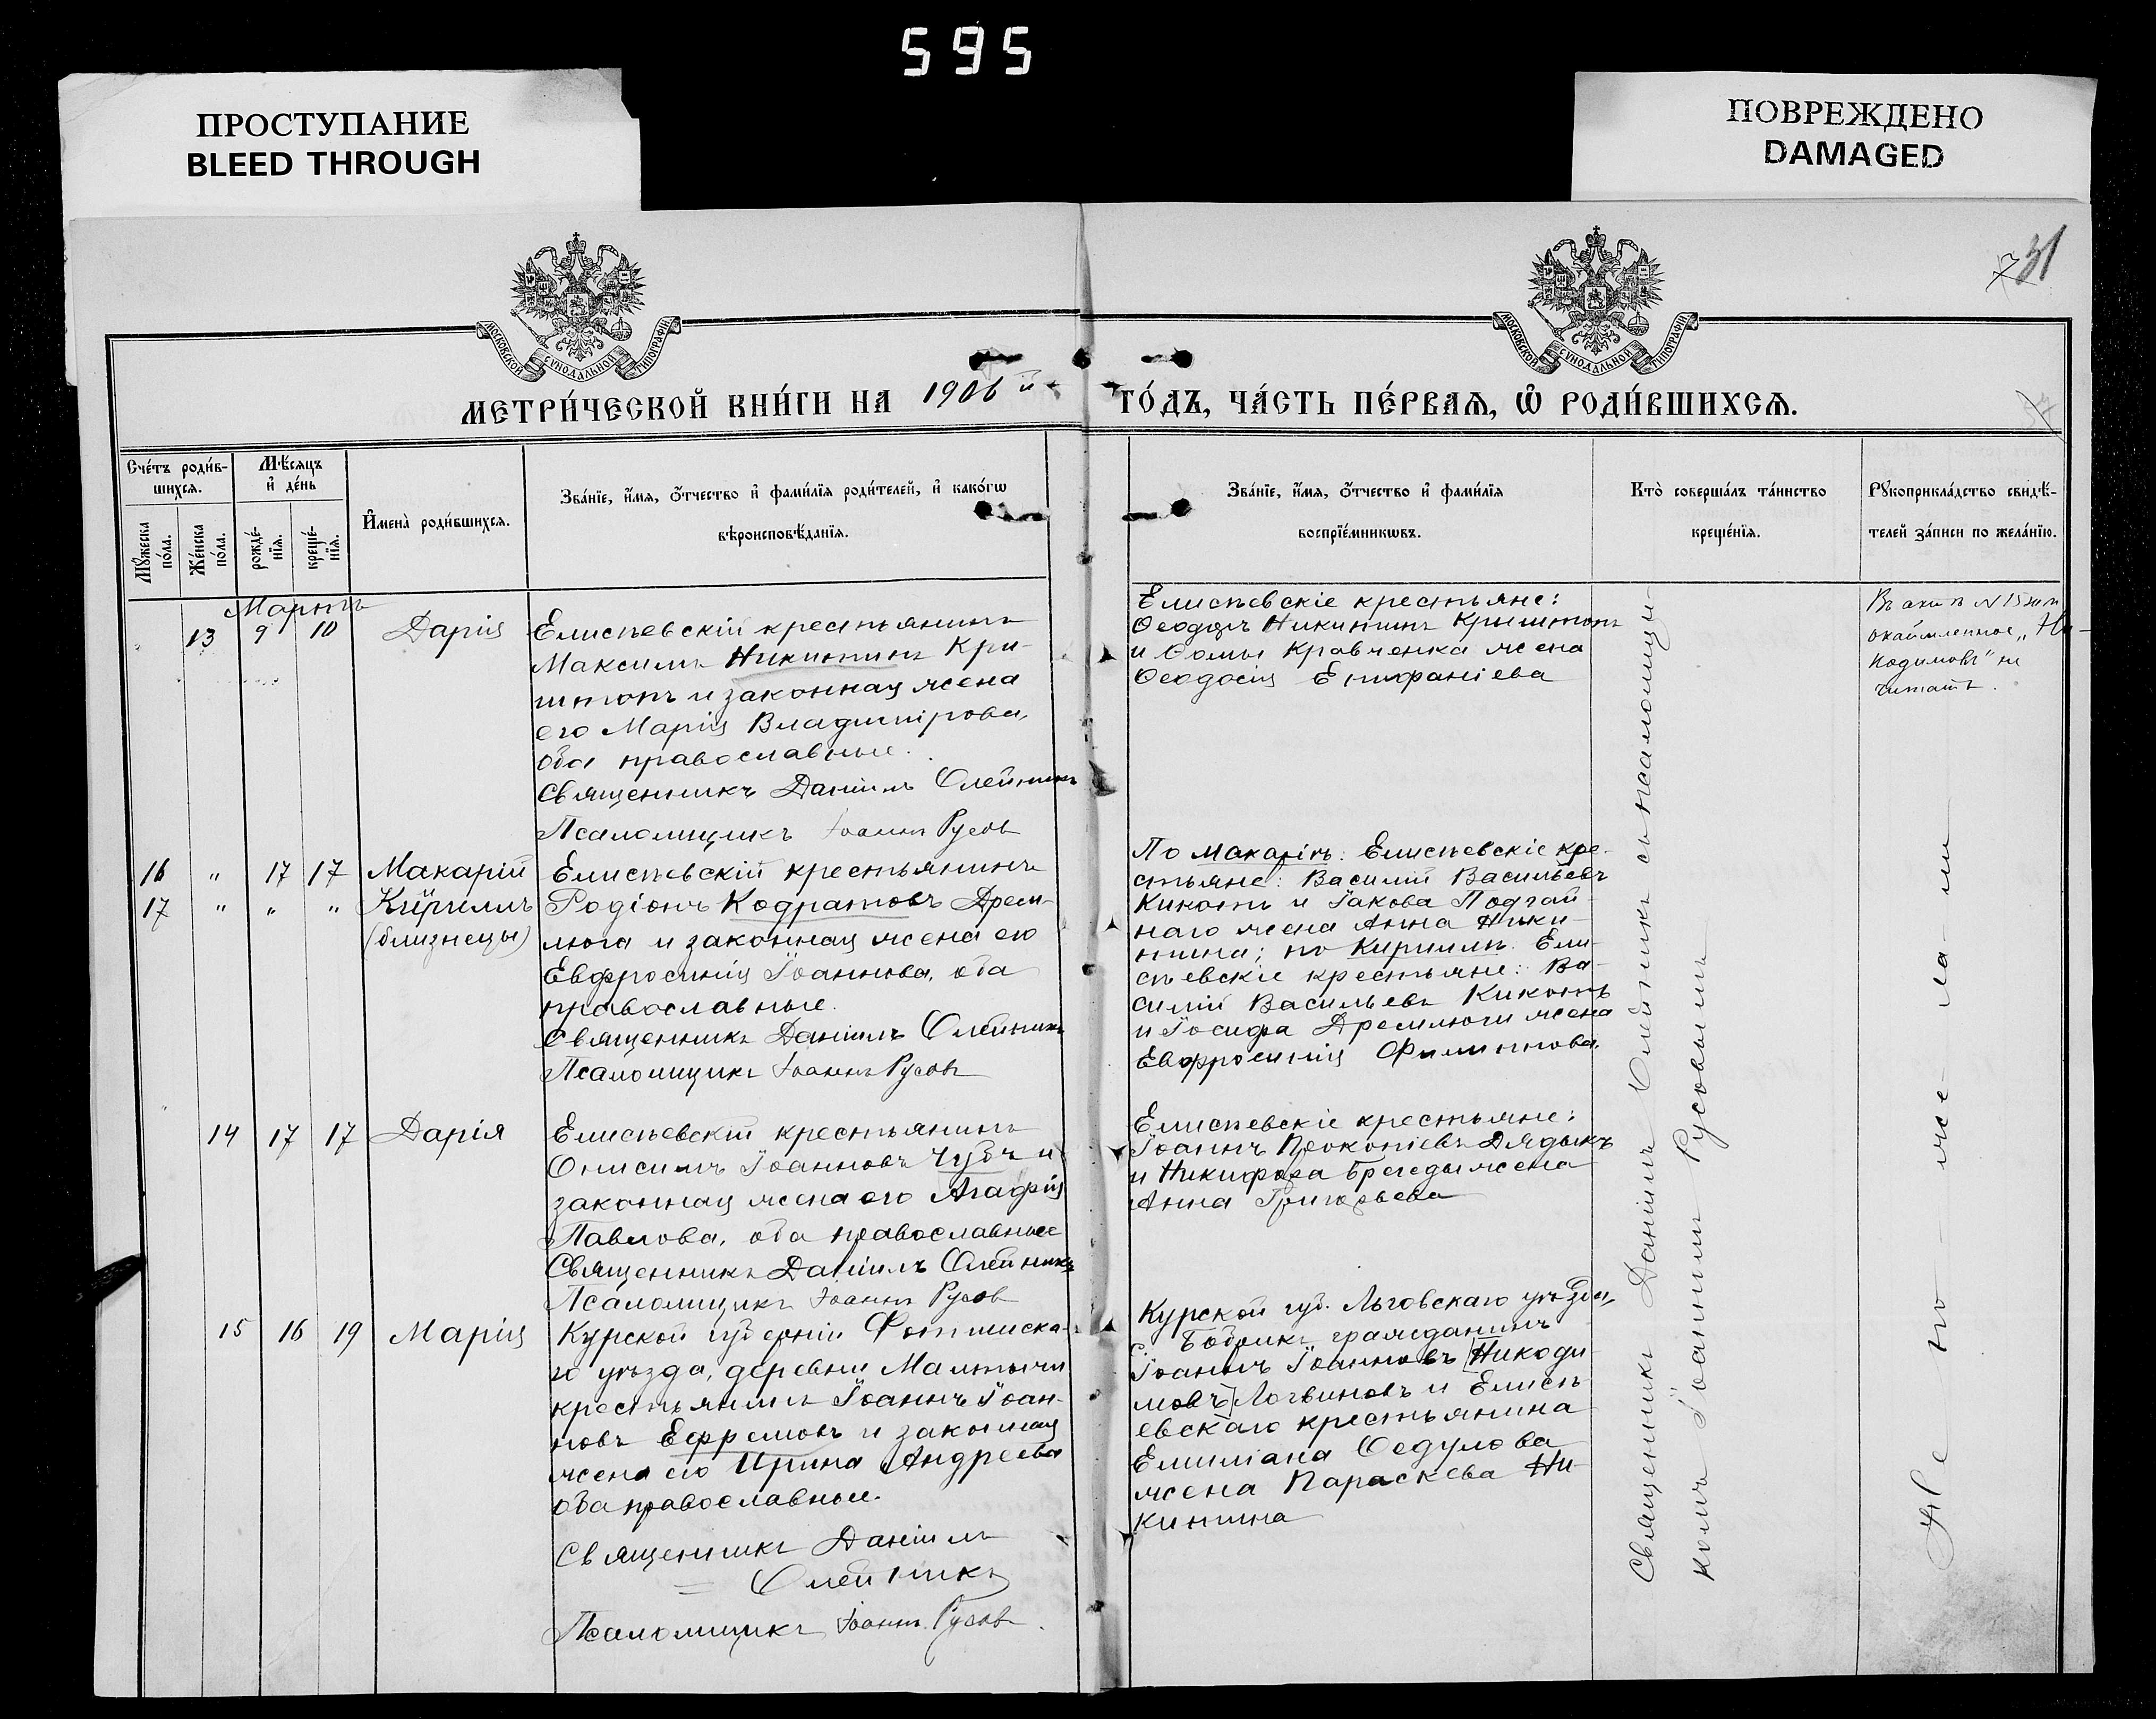 595
ПРОСТУПАНИЕ
BLEED THROUGH
ПОВРЕЖДЕНО
DAMAGED
31
МОСКОВСКОЙ СУНОДАЛЬНОЙ ТИПОГРАФІИ
МОСКОВСКОЙ СУНОДАЛЬНОЙ ТИПОГРАФІИ
МЕТРИ́ЧЕСКОЙ КНИ́ГИ НА 1906й
ГО́ДЪ, ЧА́СТЬ ПЕ́РВАѦ, Ѡ҆ РОДИ́ВШИХСѦ.
Сче́тъ роди́в-
шихсѧ.
Мѣ́сѧцъ
и҆ де́нь
Мꙋ́жеска
по́ла.
Же́нска
по́ла.
рожде́-
нїѧ.
креще́-
нїѧ.
И҆мена̀ роди́вшихсѧ.
Зва́нїе, и҆́мѧ, ѻ҆́тчество и҆ фами́лїѧ роди́телей, и҆ како́гѡ
вѣроисповѣ́данїѧ.
Зва́нїе, и҆́мѧ, ѻ҆́тчество и҆ фами́лїѧ
воспрїе́мникѡвъ.
Кто̀ соверша́лъ та́инство
креще́нїѧ.
Рꙋкоприкла́дство свидѣ́-
телей за́писи по жела́нїю.
Мартъ
13 9 10 Дарія
Елисѣевскій крестьянинъ
Максимъ Никитинъ Кри-
штопъ и законная жена
его Марія Владимірова,
оба православные.
Священникъ Даніилъ Олейникъ
Псаломщикъ Іоаннъ Русовъ
Елисѣевскіе крестьяне:
Ѳеодоръ Никитинъ Криштопъ
и Ѳомы Кравченка жена
Ѳеодосія Епифаніева
Въ актѣ №15
окаймленное „Ни-
кодимовъ" не
читать.
16 " 17 17 Макарій
17 " " " Кириллъ
(близнецы)
Елисѣевскій крестьянинъ
Родіонъ Кодратовъ Дрем-
люга и законная жена его
Евфросинія Іоаннова, оба
православные.
Священникъ Даніилъ Олейникъ
Псаломщикъ Іоаннъ Русовъ
По Макаріѣ: Елисѣевскіе кре-
стьяне: Василій Васильевъ
Кикоть и Іакова Подгай-
наго жена Анна Ники-
тина; по Кириллѣ: Ели-
сѣевскіе крестьяне: Ва-
силій Васильевъ Кикоть
и Іосифа Дремлюги жена
Евфросинія Филиппова.
14 17 17 Дарія
Елисѣевскій крестьянинъ
Онисимъ Іоанновъ Чубъ и
законная жена его Агафія
Павлова, оба православные
Священникъ Даніилъ Олейникъ
Псаломщикъ Іоаннъ Русовъ
Елисѣевскіе крестьяне:
Іоаннъ Прокопіевъ Дядыкъ
и Никифора Брегеды жена
Анна Григорьева
15 16 19 Марія
Курской губерніи
го уѣзда, деревни
крестьянинъ Іоаннъ Іоан-
новъ Ефремовъ и законная
жена его Ирина Андреева
оба православные.
Священникъ Даніилъ
Олейникъ
Псаломщикъ Іоаннъ Русовъ.
Курской губ. Льговскаго уѣзда,
с. Бобрикъ гражданинъ
Іоаннъ Іоанновъ [Никоди-
мовъ] Логвиновъ и Елисѣ-
евскаго крестьянина
Емиліана Ѳедулова
жена Параскева Ни-
китина
Священникъ Даніилъ Олейникъ съ псаломщи-
комъ Іоанномъ Русовымъ
Не по-же-ла-ли